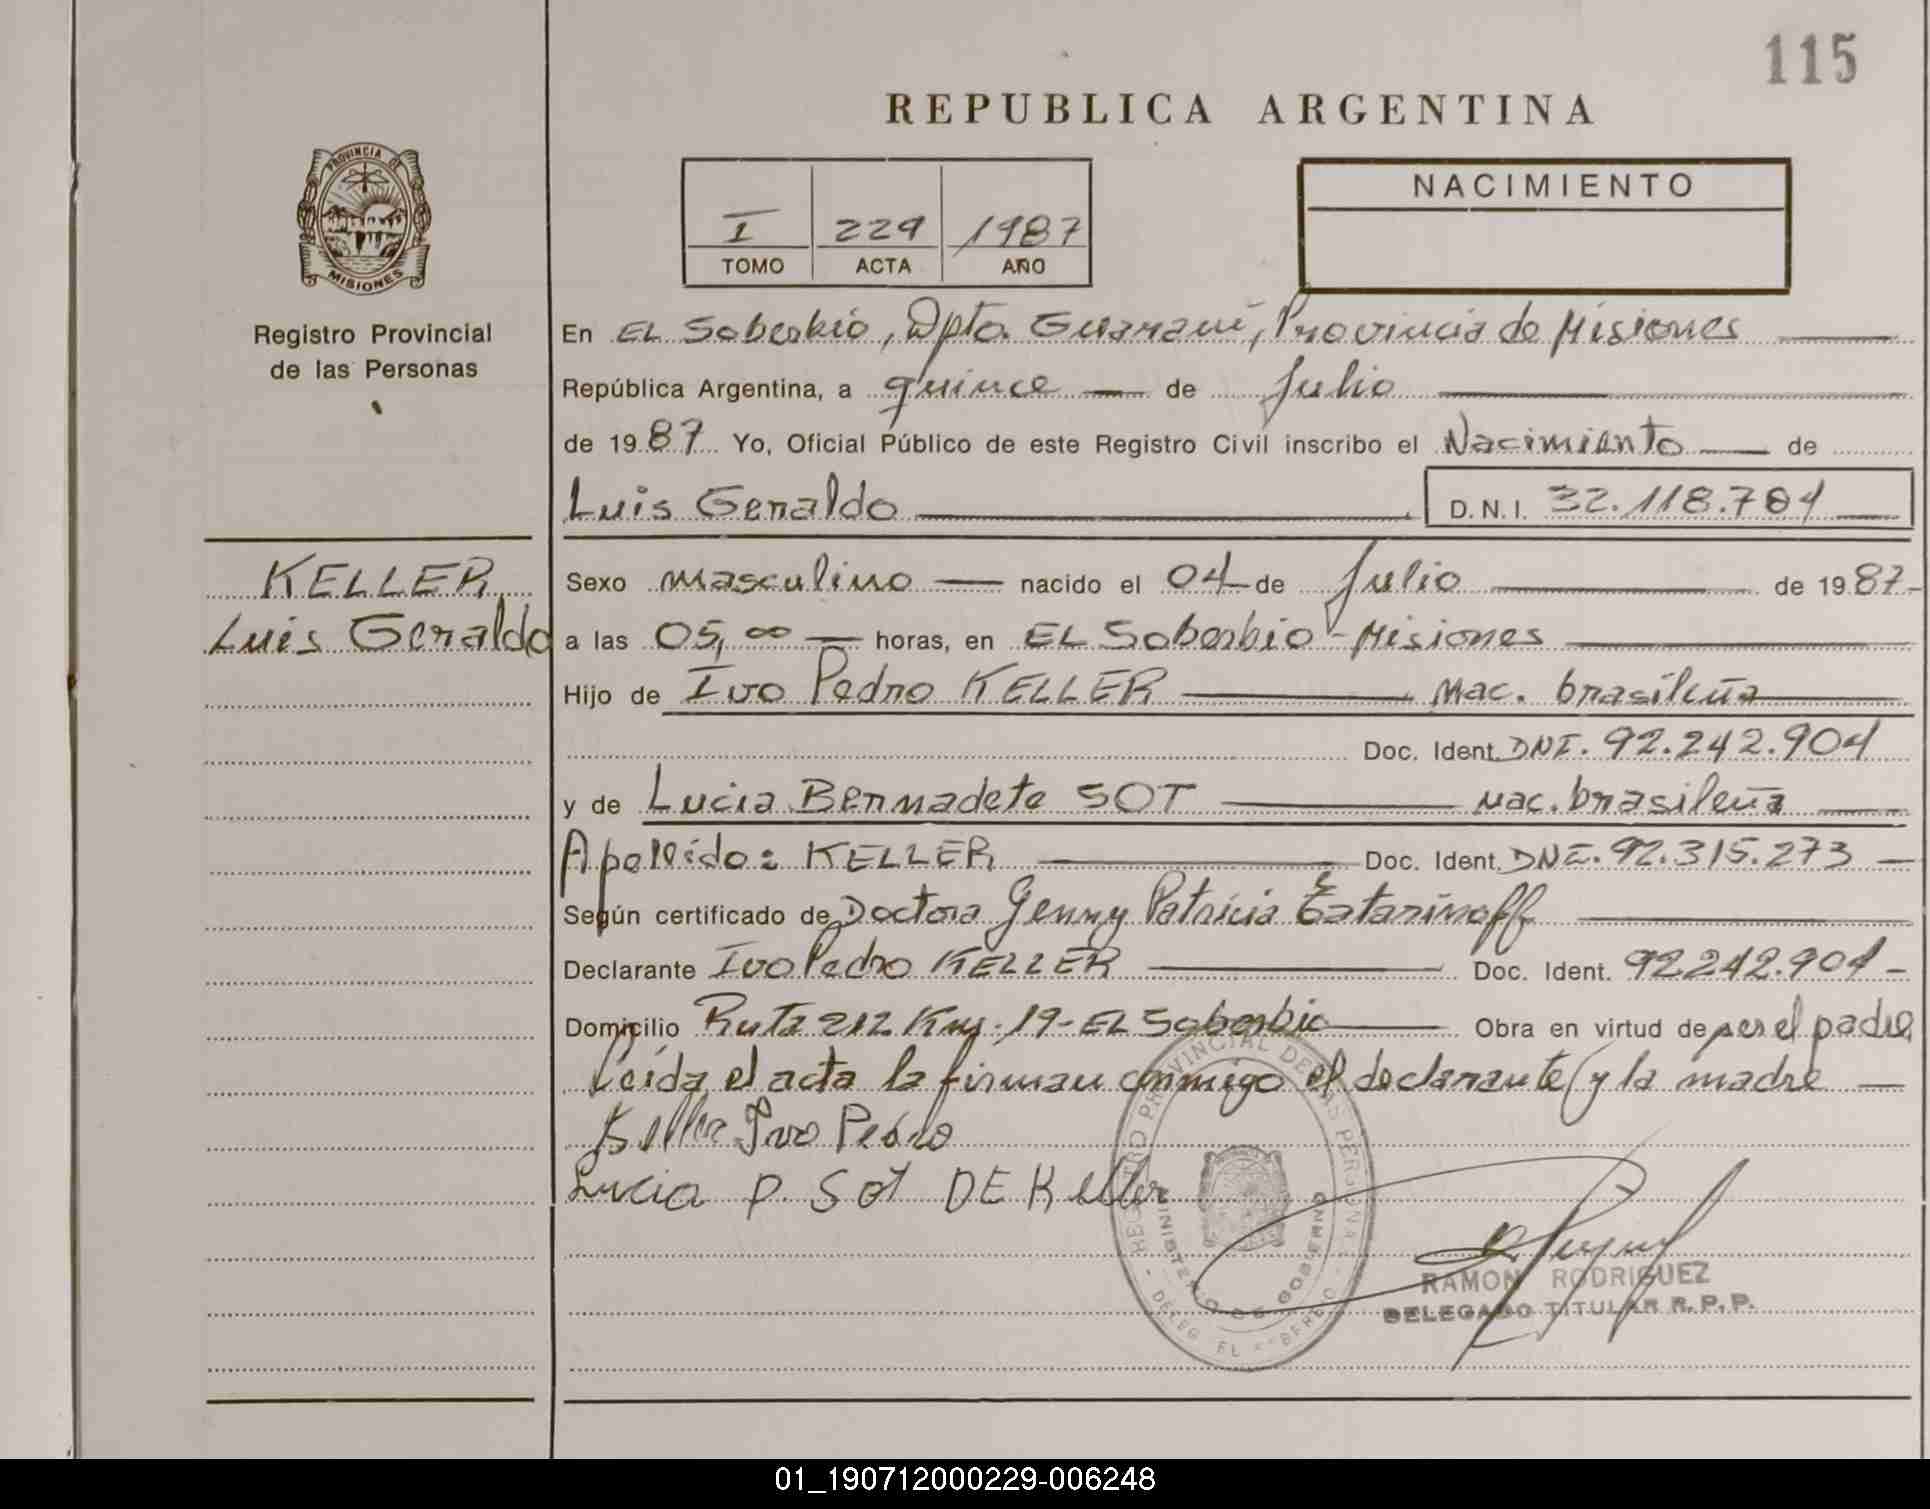 115
REPUBLICA ARGENTINA
PROVINCIA DE
MISIONES
Registro Provincial
de las Personas
I 229 1987
TOMO ACTA AÑO
NACIMIENTO
En EL Soberbio, Dpto. Guaraní, Provincia de Misiones
República Argentina, a quince de Julio
de 1987 Yo, Oficial Público de este Registro Civil inscribo el Nacimiento de
Luis Geraldo D.N.I. 32.118.704
KELLER
Luis Geraldo
Sexo masculino nacido el 04 de Julio de 1987
a las 05,00 horas, en EL Soberbio - Misiones
Hijo de Ivo Pedro KELLER Nac. brasileña
Doc. Ident. DNI. 92.242.904
y de Lucia Bernadete SOT nac. brasileña
Apellido: KELLER Doc. Ident. DNI. 92.315.273
Según certificado de Doctora Genny Patricia
Declarante Ivo Pedro KELLER Doc. Ident. 92242.904
Domicilio Ruta 212 Km. 19 - EL Soberbio Obra en virtud de ser el padre
Leída el acta la firman conmigo el declarante y la madre
Keller Ivo Pedro
Lucia P. Sot DE Keller
REGISTRO PROVINCIAL DE LAS PERSONAS
MINISTERIO DE GOBIERNO
RAMON RODRIGUEZ
DELEGADO TITULAR R.P.P.
01_190712000229-006248